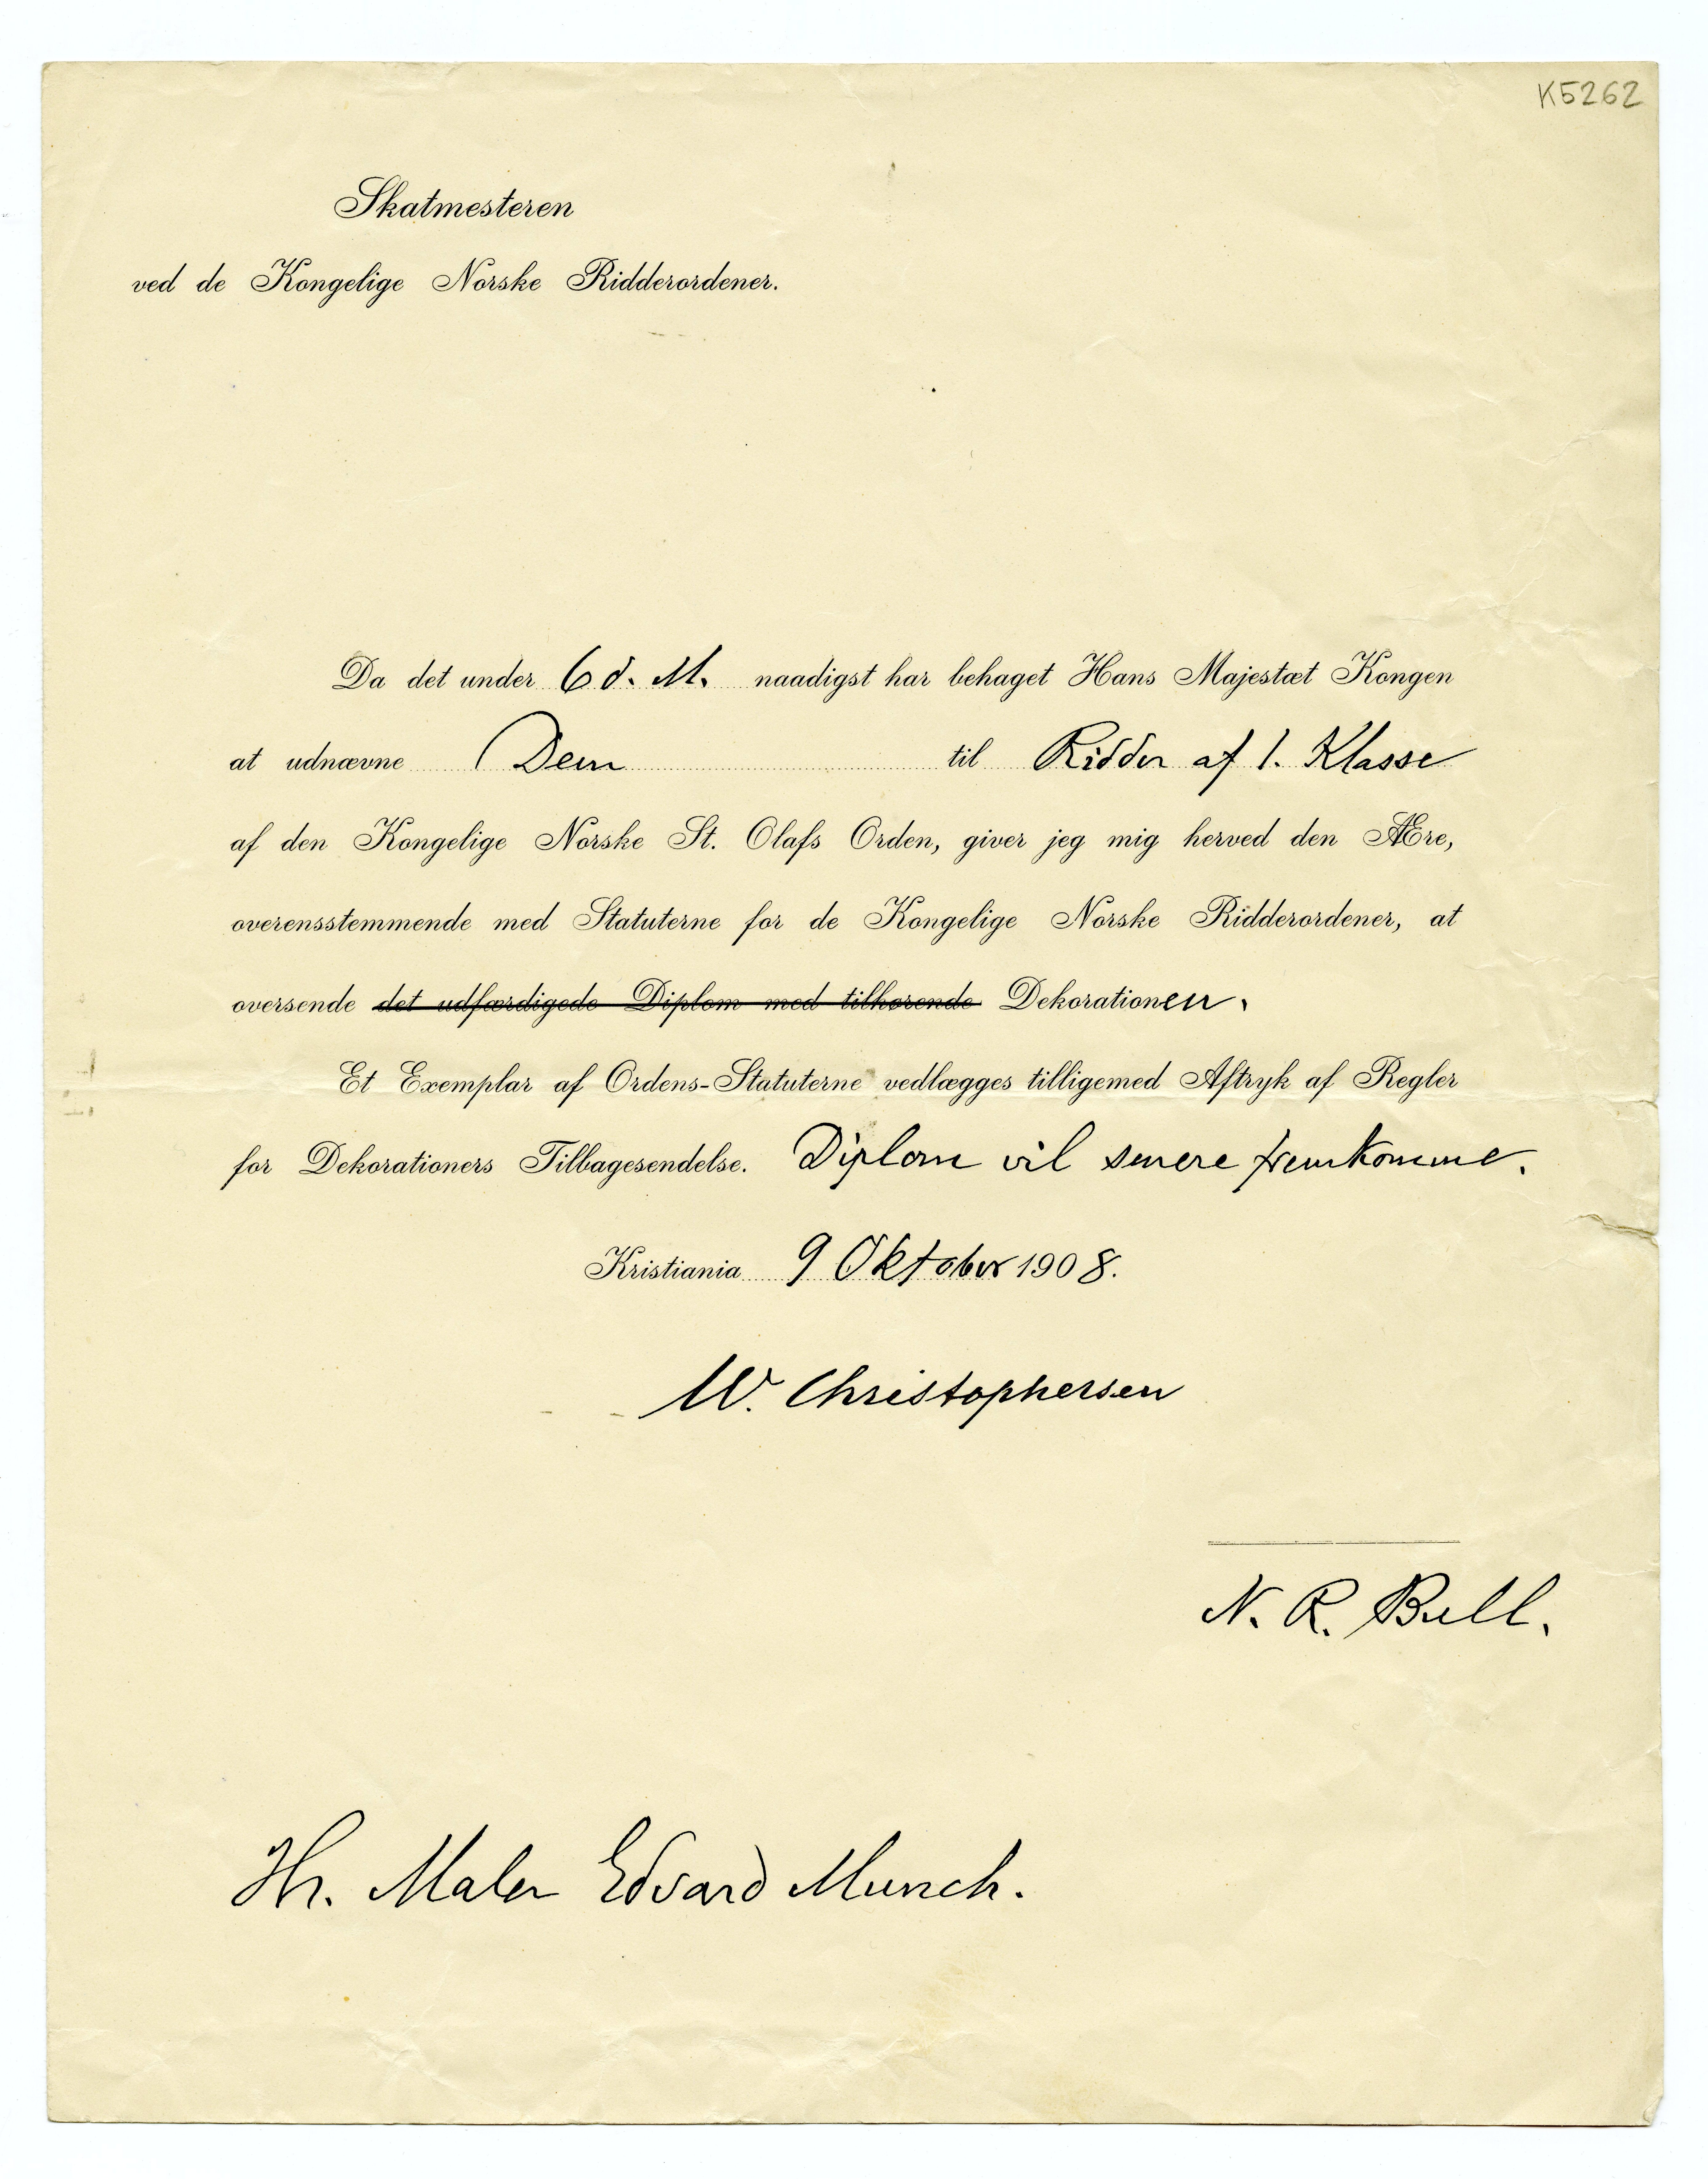 K5262
Skatmesteren
ved de Kongelige Norske Ridderordener.
Da det under 6 d. M. naadigst har behaget Hans Majestæt Kongen
at udnævne Dem til Ridder af 1. Klasse
af den Kongelige Norske St. Olafs Orden, giver jeg mig herved den Ære,
overensstemmende med Statuterne for de Kongelige Norske Ridderordener, at
oversende det udfærdigede Diplom med tilhørende Dekorationen.
Et Exemplar af Ordens-Statuterne vedlægges tilligemed Aftryk af Regler
for Dekorationers Tilbagesendelse. Diplom vil senere fremkomme.
Kristiania 9 Oktober 1908.
W. Christophersen
N. R. Bull.
Hr. Maler Edvard Munch.